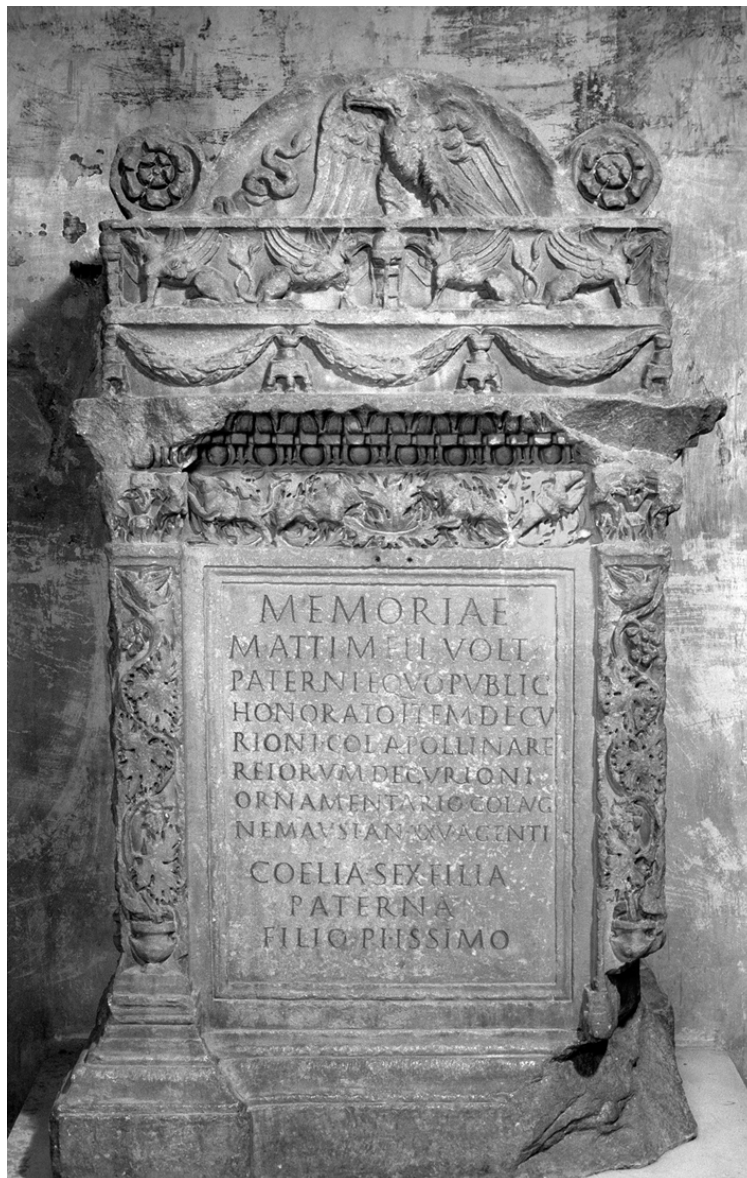 MEMORIAE
MATTI M FIL VOLT
PATERNI EQVO PVBLIC
HONORATO ITEM DECV
RIONI COL APOLLINARE
REIORVM DECVRIONI
ORNAMENTARIO COL AVG
NEMAVSI AN XXV AGENTI
COELIA SEX FILIA
PATERNA
FILIO PIISSIMO